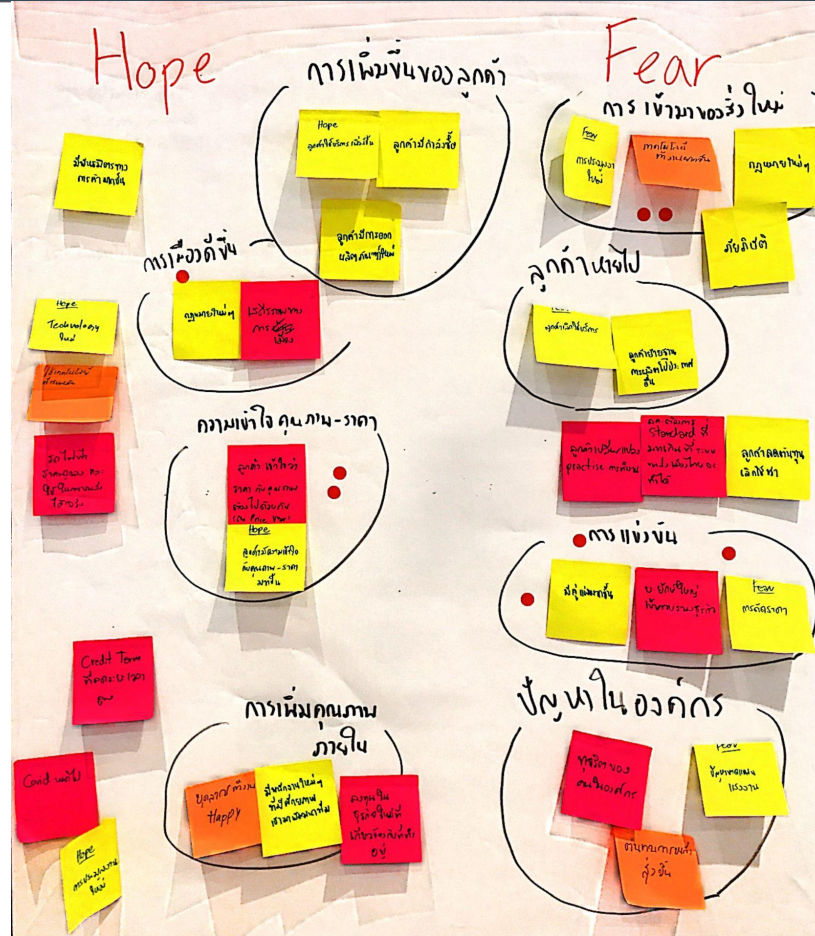 Hope
Fear
การเพิ่มขึ้นของลูกค้า
Hope
ลูกค้าใช้บริการเพิ่มขึ้น
ลูกค้ามีกำลังซื้อ
ลูกค้ามีการออก
ผลิตภัณฑ์ใหม่
มีพันธมิตรทาง
การค้ามากขึ้น
การเมืองดีขึ้น
กฎหมายใหม่ๆ
เสถียรภาพทาง
การ
เมือง
Hope
Technology
ใหม่
ความเข้าใจ คุณภาพ-ราคา
ลูกค้า เข้าใจว่า
ราคา กับ คุณภาพ
ต้องไปด้วยกัน
Hope
ลูกค้ามีความเข้าใจ
กับคุณภาพ-ราคา
มากขึ้น
Credit Term
Covid
Hope
ใหม่
การเพิ่มคุณภาพ
ภายใน
บุคลากรทำงาน
Happy
มีพนักงานใหม่ๆ
ที่มีศักยภาพ
เข้ามาร่วมทีม
ลงทุนใน
ธุรกิจใหม่ที่
เกี่ยวข้องกับที่ทำ
อยู่
การเข้ามาของสิ่งใหม่
Fear
การประมูลงา
ใหม่
กฎหมายใหม่ๆ
ภัยพิบัติ
ลูกค้าหายไป
ลูกค้าเลิกใช้บริการ
ลูกค้าย้ายฐาน
การผลิตไปประเทศ
อื่น
ลูกค้าเปลี่ยนแปลง
practise การทำงาน
Standard ที่
ทำได้
ลูกค้าลดต้นทุน
เลิกใช้
การแข่งขัน
มีคู่แข่งมากขึ้น
บ.ยักษ์ใหญ่
Fear
การตัดราคา
ปัญหาในองค์กร
ทุจริตของ
คนในองค์กร
Fear
ปัญหาขาดแคลน
แรงงาน
ต้นทุนการขนส่ง
สูงขึ้น